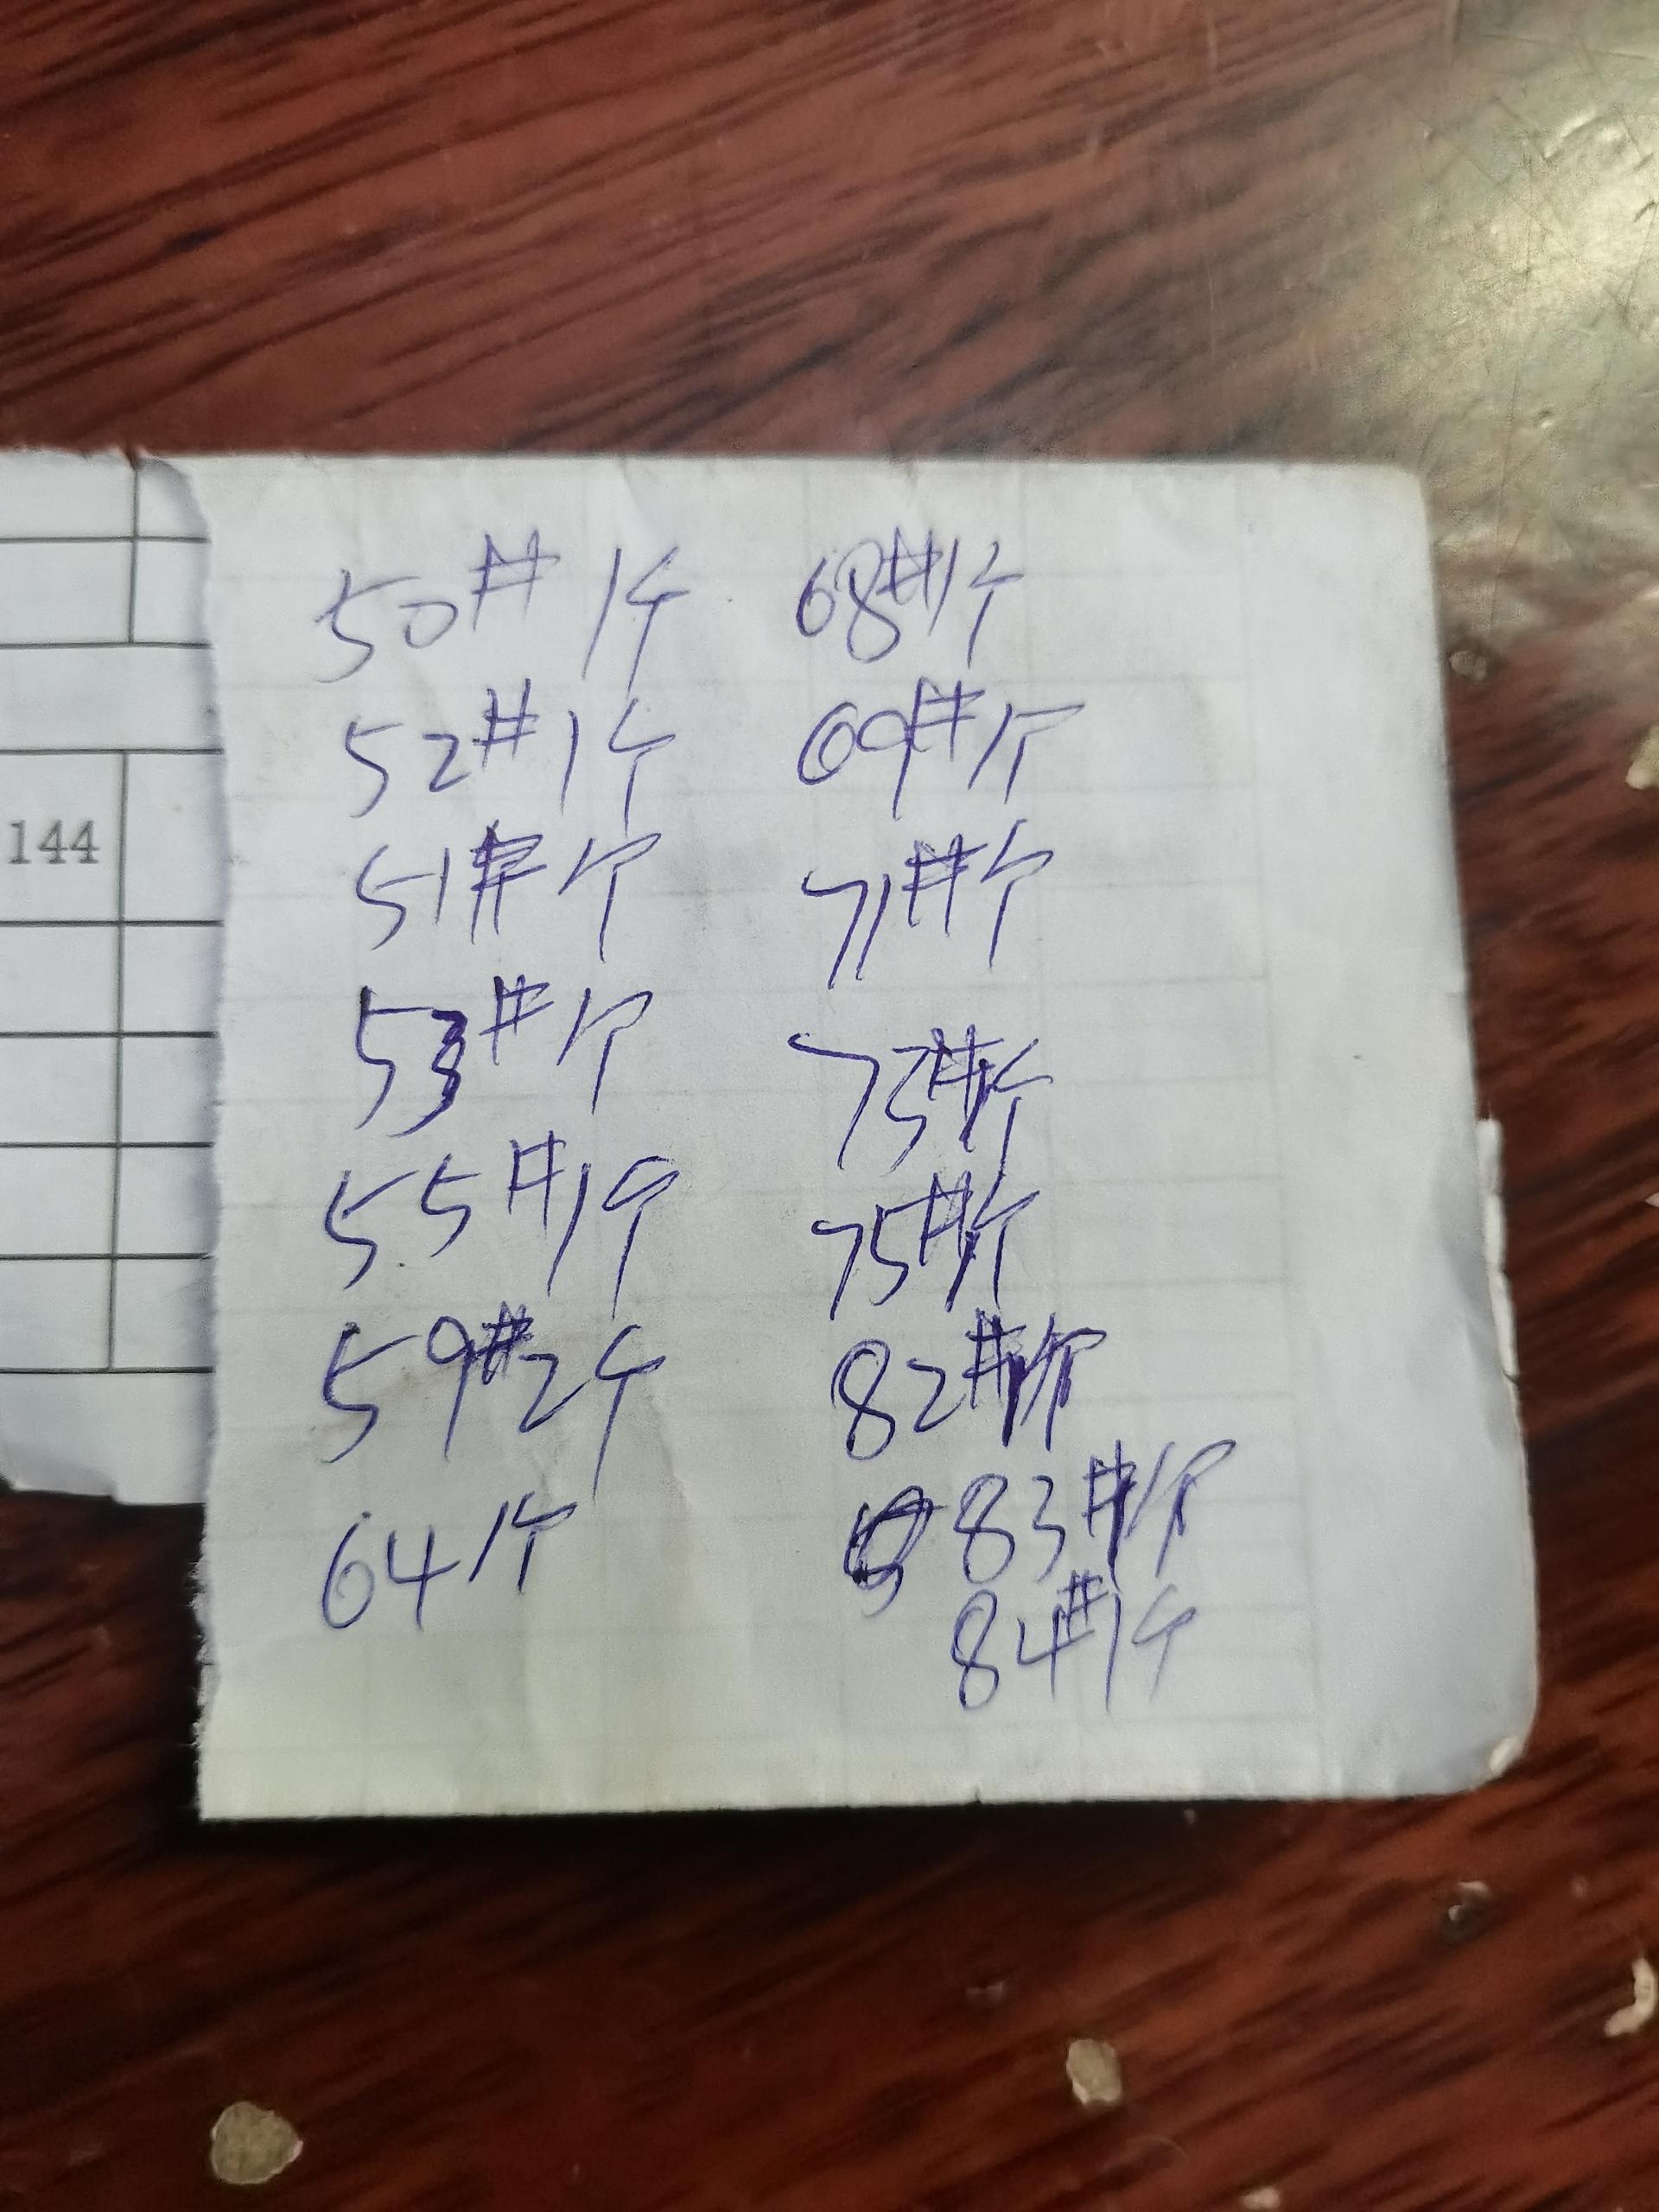 144
50# 1个
52# 1个
51# 1个
53# 1个
55# 1个
59# 2个
64 1个
68# 1个
69# 1个
71# 个
73# 1个
75# 1个
82# 1个
83# 1个
84# 1个